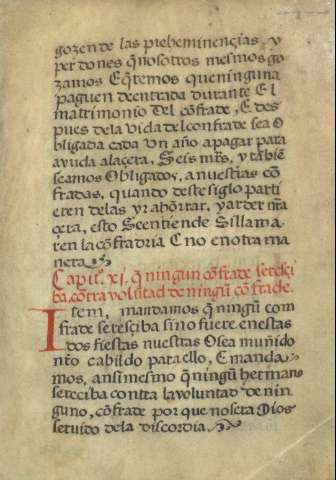 gozen de las preheminençias, y
perdones q̃ nosotros mesmos go
zamos E q̃remos que ninguna
paguen de entrada durante El
matrimonio Del cõfrade, E des
pues de la vida del confrade sea O
bligada cada Un año a pagar para
ayuda a la çera, Seis mrs, y tãbiẽ
seamos Obligados, a nuestras cõ
fradas, quando deste siglo parti
eren de las yr a hõrrar, y arder nr̃a
çera, esto Se entiende Si llama
ren la cõfradria E no en otra ma
nera
Capit.º xj. q̃ ningun cõfrade se resçi
ba, cõtra volũtad de ningũ cõfrade.
Item, mandamos q̃ ningũ com
frade se resçiba si no fuere en estas
dos fiestas nuestras O sea muñido
nr̃o cabildo para ello, E manda
mos, ansi mesmo q̃ ningũ hermano
se reciba contra la voluntad de nin
guno, cõfrade por que no sera Dios
seruido de la discordia.